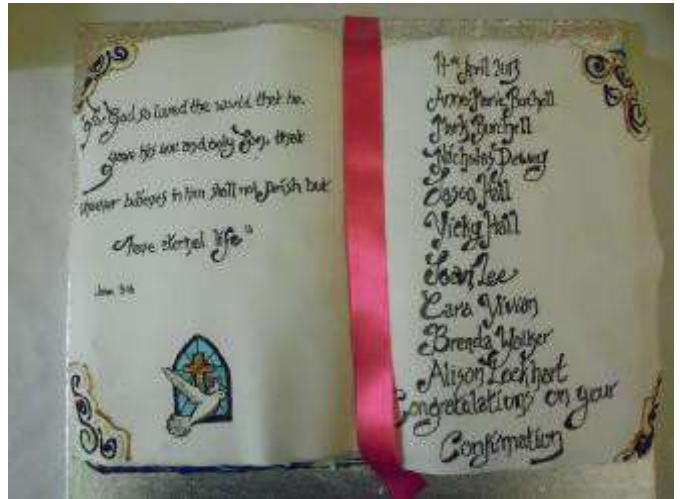 "For God so loved the world that he
gave his one and only Son, that
whoever believes in him shall not perish but
have eternal life"
John 3:16
14th April 2013
Anne-Marie Burchell
Mark Burchell
Nicholas Dewey
Jason Hall
Vicky Hall
Joan Lee
Cara Vivian
Brenda Walker
Alison Lockhart
Congratulations on your
Confirmation